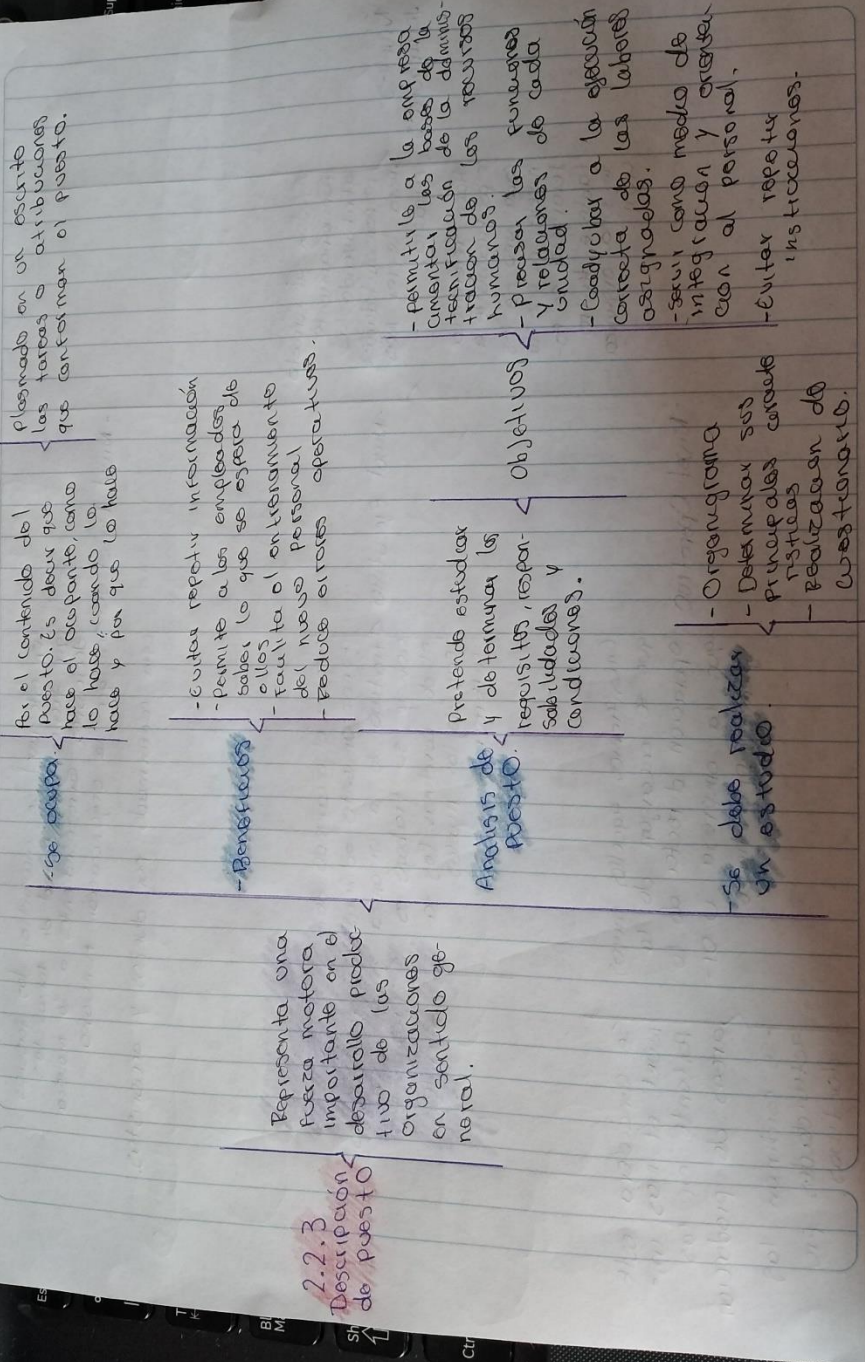 2.2.3
Descripción
de puesto
Representa una
fuerza motora
importante en el
desarrollo produc-
tivo de las
organizaciones
en sentido ge-
neral.
-Se ocupa
Por el contenido del
puesto. Es decir que
hace el ocupante, como
lo hace, cuando lo
hace y por que lo hace
Plasmado en un escrito
las tareas o atribuciones
que conforman el puesto.
-Beneficios
-Evitar repetir información
-Permite a los empleados
saber lo que se espera de
ellos
-Faulita el entrenamiento
del nuevo personal
-Reduce errores operativos.
Analisis de
puesto.
Pretende estudiar
y determinar los
requisitos, respon-
sabilidades y
condiciones.
Objetivos
-permitirle a la empresa
cimentar las bases de la
tecnificación de la adminis-
tracion de los recursos
humanos.
-Precisar las funciones
y relaciones de cada
unidad.
-Coadyubar a la ejecución
correcta de las labores
asignadas.
-Servir como medio de
integracion y orienta-
cion al personal.
-Evitar repetir
instrucciones.
-Se debe realizar
un estudio.
-Organigrama
-Determinar sus
principales caracte
risticas
-Realizacion de
cuestionario.
Es
Sh
Ctr